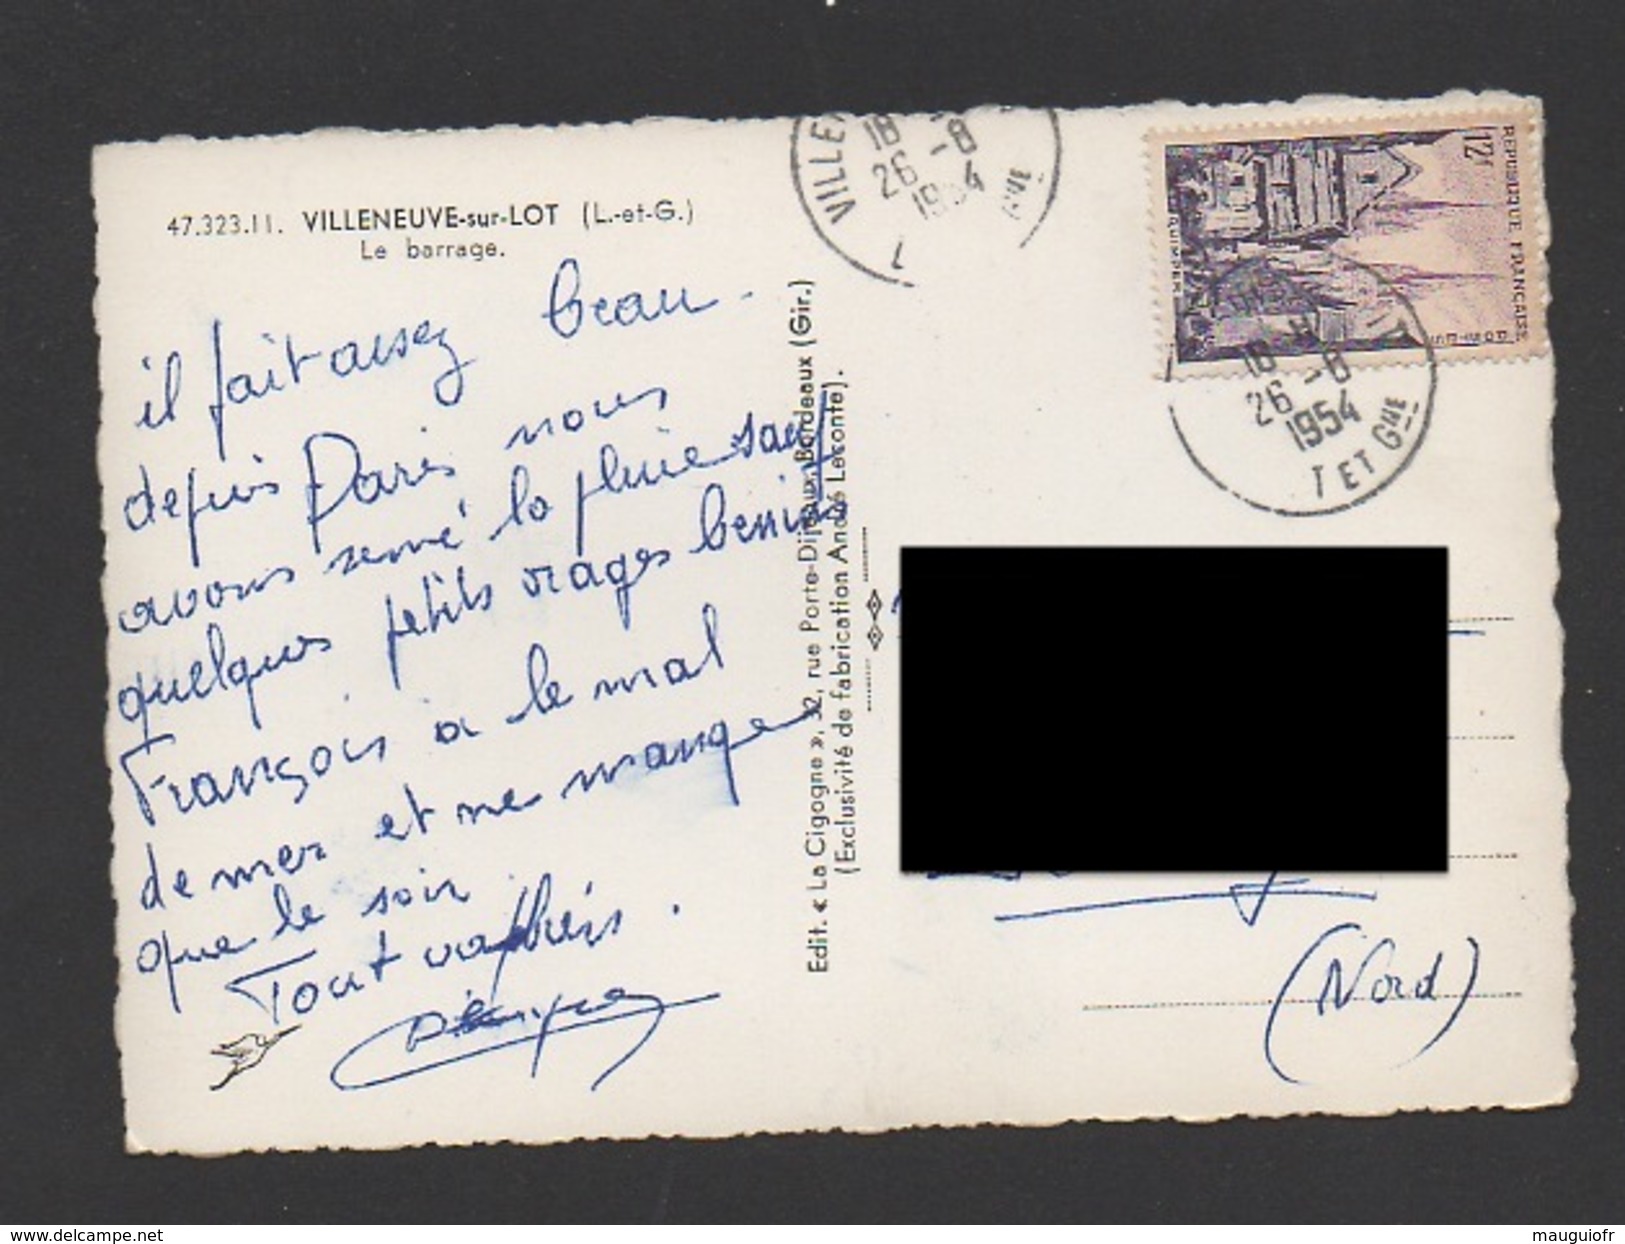 47.323.11. VILLENEUVE-sur-LOT (L.-et-G.)
Le barrage.
il fait assez beau.
depuis Paris nous
avons semé la pluie sauf
quelques petits orages bennins
François à le mal
de mer et ne mange
que le soir.
Tout va très bien.
Edit. « La Cigogne », 32, rue Porte-Dijeaux, Bordeaux (Gir.)
(Exclusivité de fabrication André Leconte).
VILLE
18
26 -8
1954
Gne
REPUBLIQUE FRANÇAISE
12f
QUIMPER
18 H
26 -8
1954
T ET Gne
(Nord)
mauguiofr
www.delcampe.net